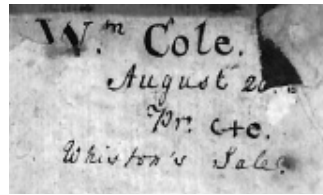 W.ᵐ Cole.
August 20
Pr. c+c.
Whiston's Sale.